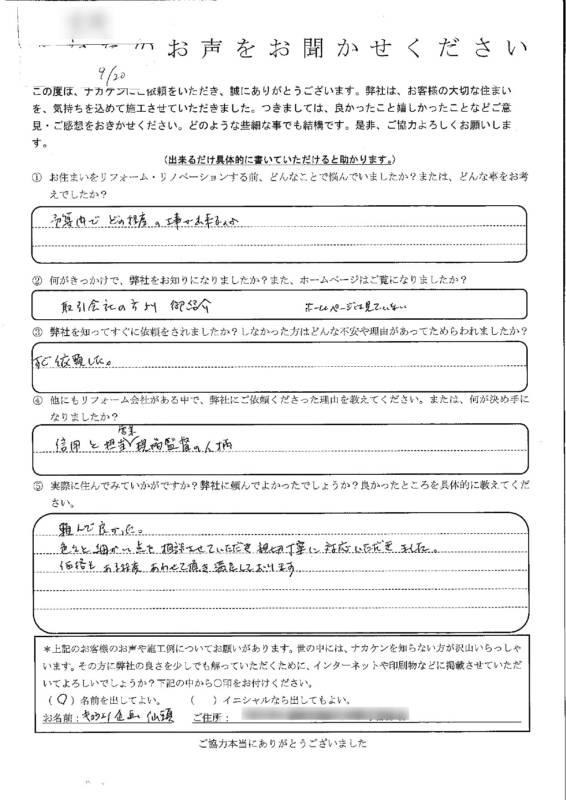 お声をお聞かせください
9/20
この度は、ナカケンにご依頼をいただき、誠にありがとうございます。弊社は、お客様の大切な住まい
を、気持ちを込めて施工させていただきました。つきましては、良かったこと嬉しかったことなどご意
見・ご感想をおきかせください。どのような些細な事でも結構です。是非、ご協力よろしくお願いしま
す。
(出来るだけ具体的に書いていただけると助かります。)
① お住まいをリフォーム・リノベーションする前、どんなことで悩んでいましたか？または、どんな事をお考
えでしたか？
予算内で どの程度の工事が出来るか
② 何がきっかけで、弊社をお知りになりましたか？また、ホームページはご覧になりましたか？
取引会社の方より 御紹介 ホームページは見ていない
③ 弊社を知ってすぐに依頼をされましたか？しなかった方はどんな不安や理由があってためらわれましたか？
すぐ依頼した。
④ 他にもリフォーム会社がある中で、弊社にご依頼くださった理由を教えてください。または、何が決め手に
なりましたか？
営業
信用と担当 現場監督の人柄
⑤ 実際に住んでみていかがですか？弊社に頼んでよかったでしょうか？良かったところを具体的に教えてくだ
さい。
頼んで良かった。
色々と細かい点を相談させていただき親切丁寧に対応いただきました。
価格もある程度あわせて頂き満足しております
＊上記のお客様のお声や施工例についてお願いがあります。世の中には、ナカケンを知らない方が沢山いらっしゃ
います。その方に弊社の良さを少しでも解っていただくために、インターネットや印刷物などに掲載させていただ
いてよろしいでしょうか？下記の中から〇印をお付けください。
(〇) 名前を出してよい。 ( ) イニシャルなら出してもよい。
お名前： 企画 仙頭 ご住所：
ご協力本当にありがとうございました